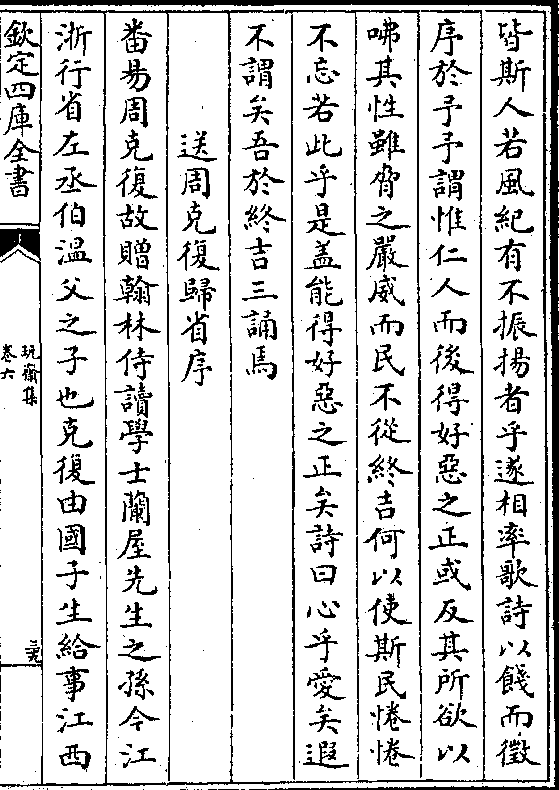 皆斯人若風紀有不振揚者乎遂相率歌詩以餞而徵
序於予予謂惟仁人而後得好惡之正或反其所欲以
咈其性雖脅之嚴威而民不從終吉何以使斯民惓惓
不忘若此乎是盖能得好惡之正矣詩曰心乎愛矣遐
不謂矣吾於終吉三誦焉
送周克復歸省序
番昜周克復故贈翰林侍讀學士蘭屋先生之孫今江
浙行省左丞伯溫父之子也克復由國子生給事江西
欽定四庫全書
玩齋集
卷六
二九